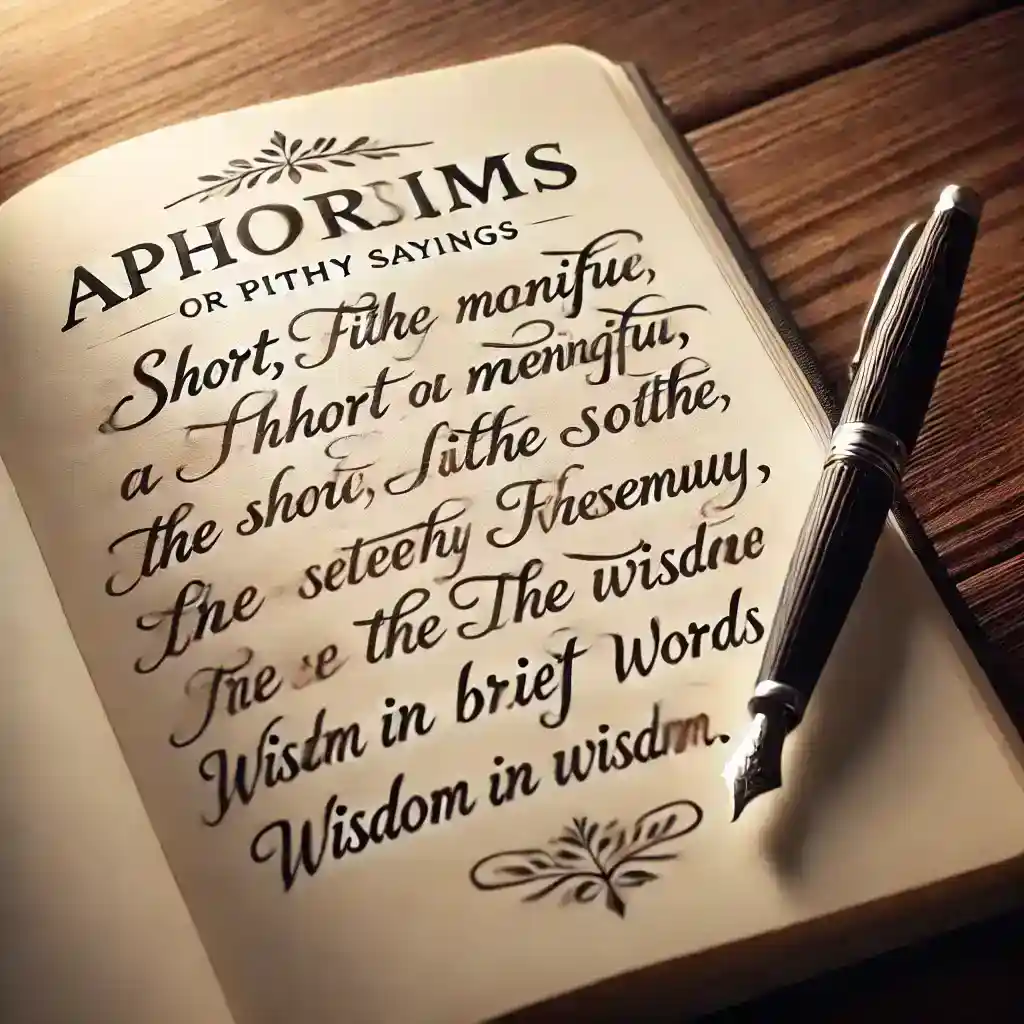 APHORSIMS
OR PITHY SAYINGS
Short, Fithe monifue,
a Thhort ou meningful,
the shout, Juithe sotthe,
the seteehy Fhesemuuy,
The e the The wisdne
Wistm in brief Words
Wisdom in wisdrm.